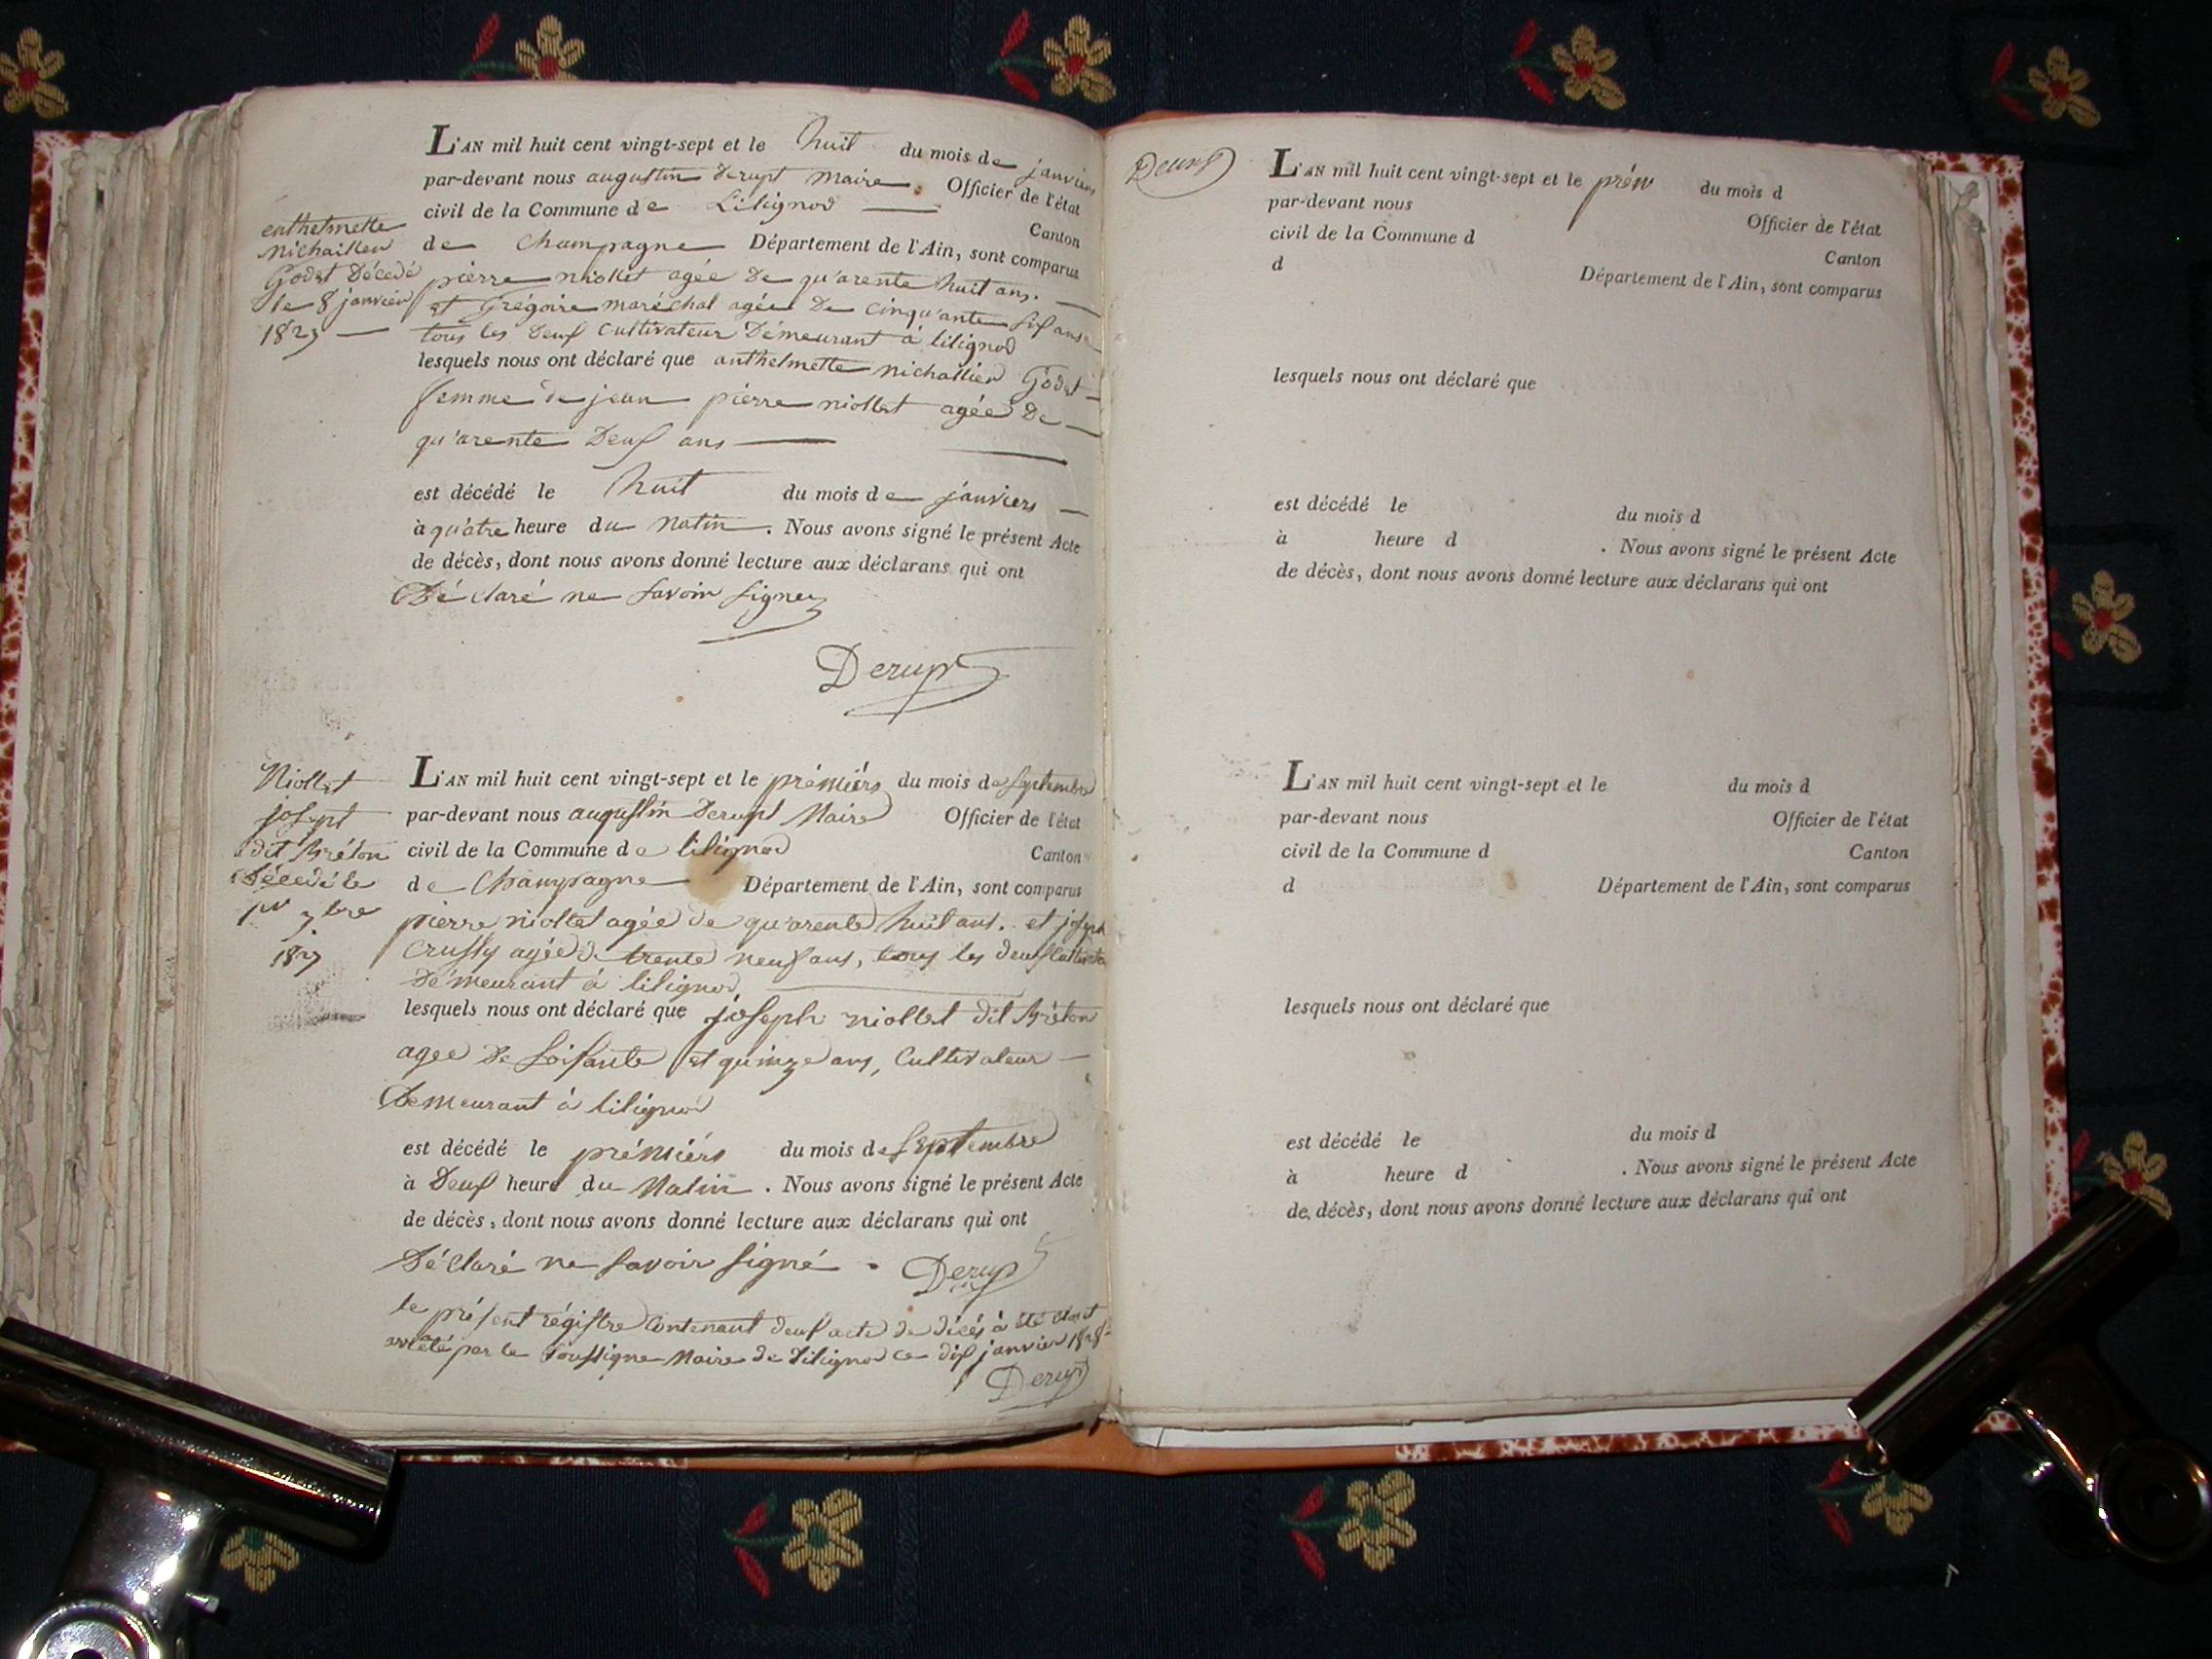 L'AN mil huit cent vingt-sept et le huit du mois de janviers
par-devant nous augustin Derupt Maire. Officier de l'état
civil de la Commune de Lilignod Canton
de Champagne Département de l'Ain, sont comparus
pierre niollet agée De qu'arente huit ans.
et Grégoire maréchal agée De cinqu'ante six ans
tous les Deux cultivateur Démeurant à lilignod
lesquels nous ont déclaré que anthelmette nichallier Godet
femme de jean pierre niollet agée De
qu'arente Deux ans
est décédé le huit du mois de janviers
à qu'atre heure du Matin. Nous avons signé le présent Acte
de décès, dont nous avons donné lecture aux déclarans qui ont
Déclaré ne savoir signer
Derupt
enthelmette
Nichaillier
Godet Décedé
le 8 janvier
1827
L'AN mil huit cent vingt-sept et le prémiérs du mois de septembre
par-devant nous augustin Derupt Maire Officier de l'état
civil de la Commune de lilignod Canton
de Champagne Département de l'Ain, sont comparus
pierre niollet agée de qu'arente huit ans. et joseph
Crussy agée de trente neuf ans, tous les deux
Démeurant à lilignod
lesquels nous ont déclaré que joseph niollet dit Bréton
agee De soisante et quinze ans, Cultivateur
Demeurant à lilignod
est décédé le prémiérs du mois de septembre
à Deux heure du Matin. Nous avons signé le présent Acte
de décès, dont nous avons donné lecture aux déclarans qui ont
Déclaré ne savoir signé. Derupt
Niollet
josept
dit Bréton
Décedé le
1er 7bre
1827
le présent régistre Contenant deux acte de décés à été clos et
arrété par le soussigne Maire de Lilignod ce dix janvier 1828
Derupt
Derupt
L'AN mil huit cent vingt-sept et le prém du mois d
par-devant nous Officier de l'état
civil de la Commune d Canton
d Département de l'Ain, sont comparus
lesquels nous ont déclaré que
est décédé le du mois d
à heure d . Nous avons signé le présent Acte
de décès, dont nous avons donné lecture aux déclarans qui ont
L'AN mil huit cent vingt-sept et le du mois d
par-devant nous Officier de l'état
civil de la Commune d Canton
d Département de l'Ain, sont comparus
lesquels nous ont déclaré que
est décédé le du mois d
à heure d . Nous avons signé le présent Acte
de décès, dont nous avons donné lecture aux déclarans qui ont